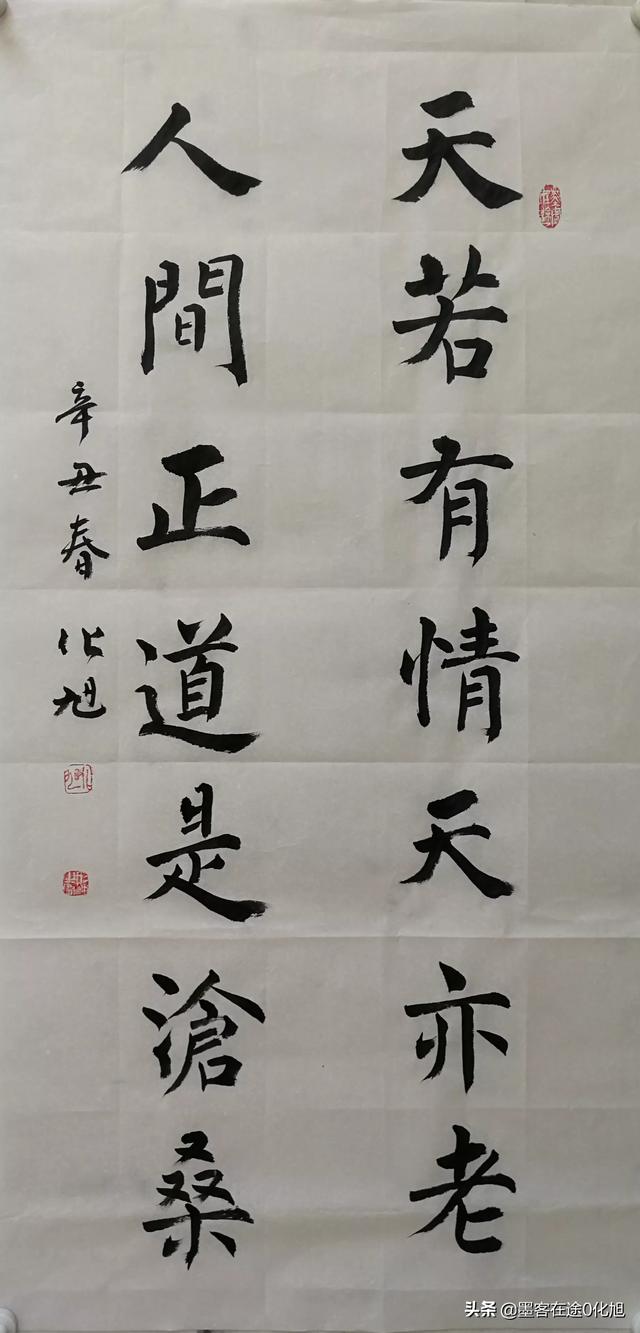 天若有情天亦老
人間正道是滄桑
辛丑春 化旭
头条 @墨客在途0化旭